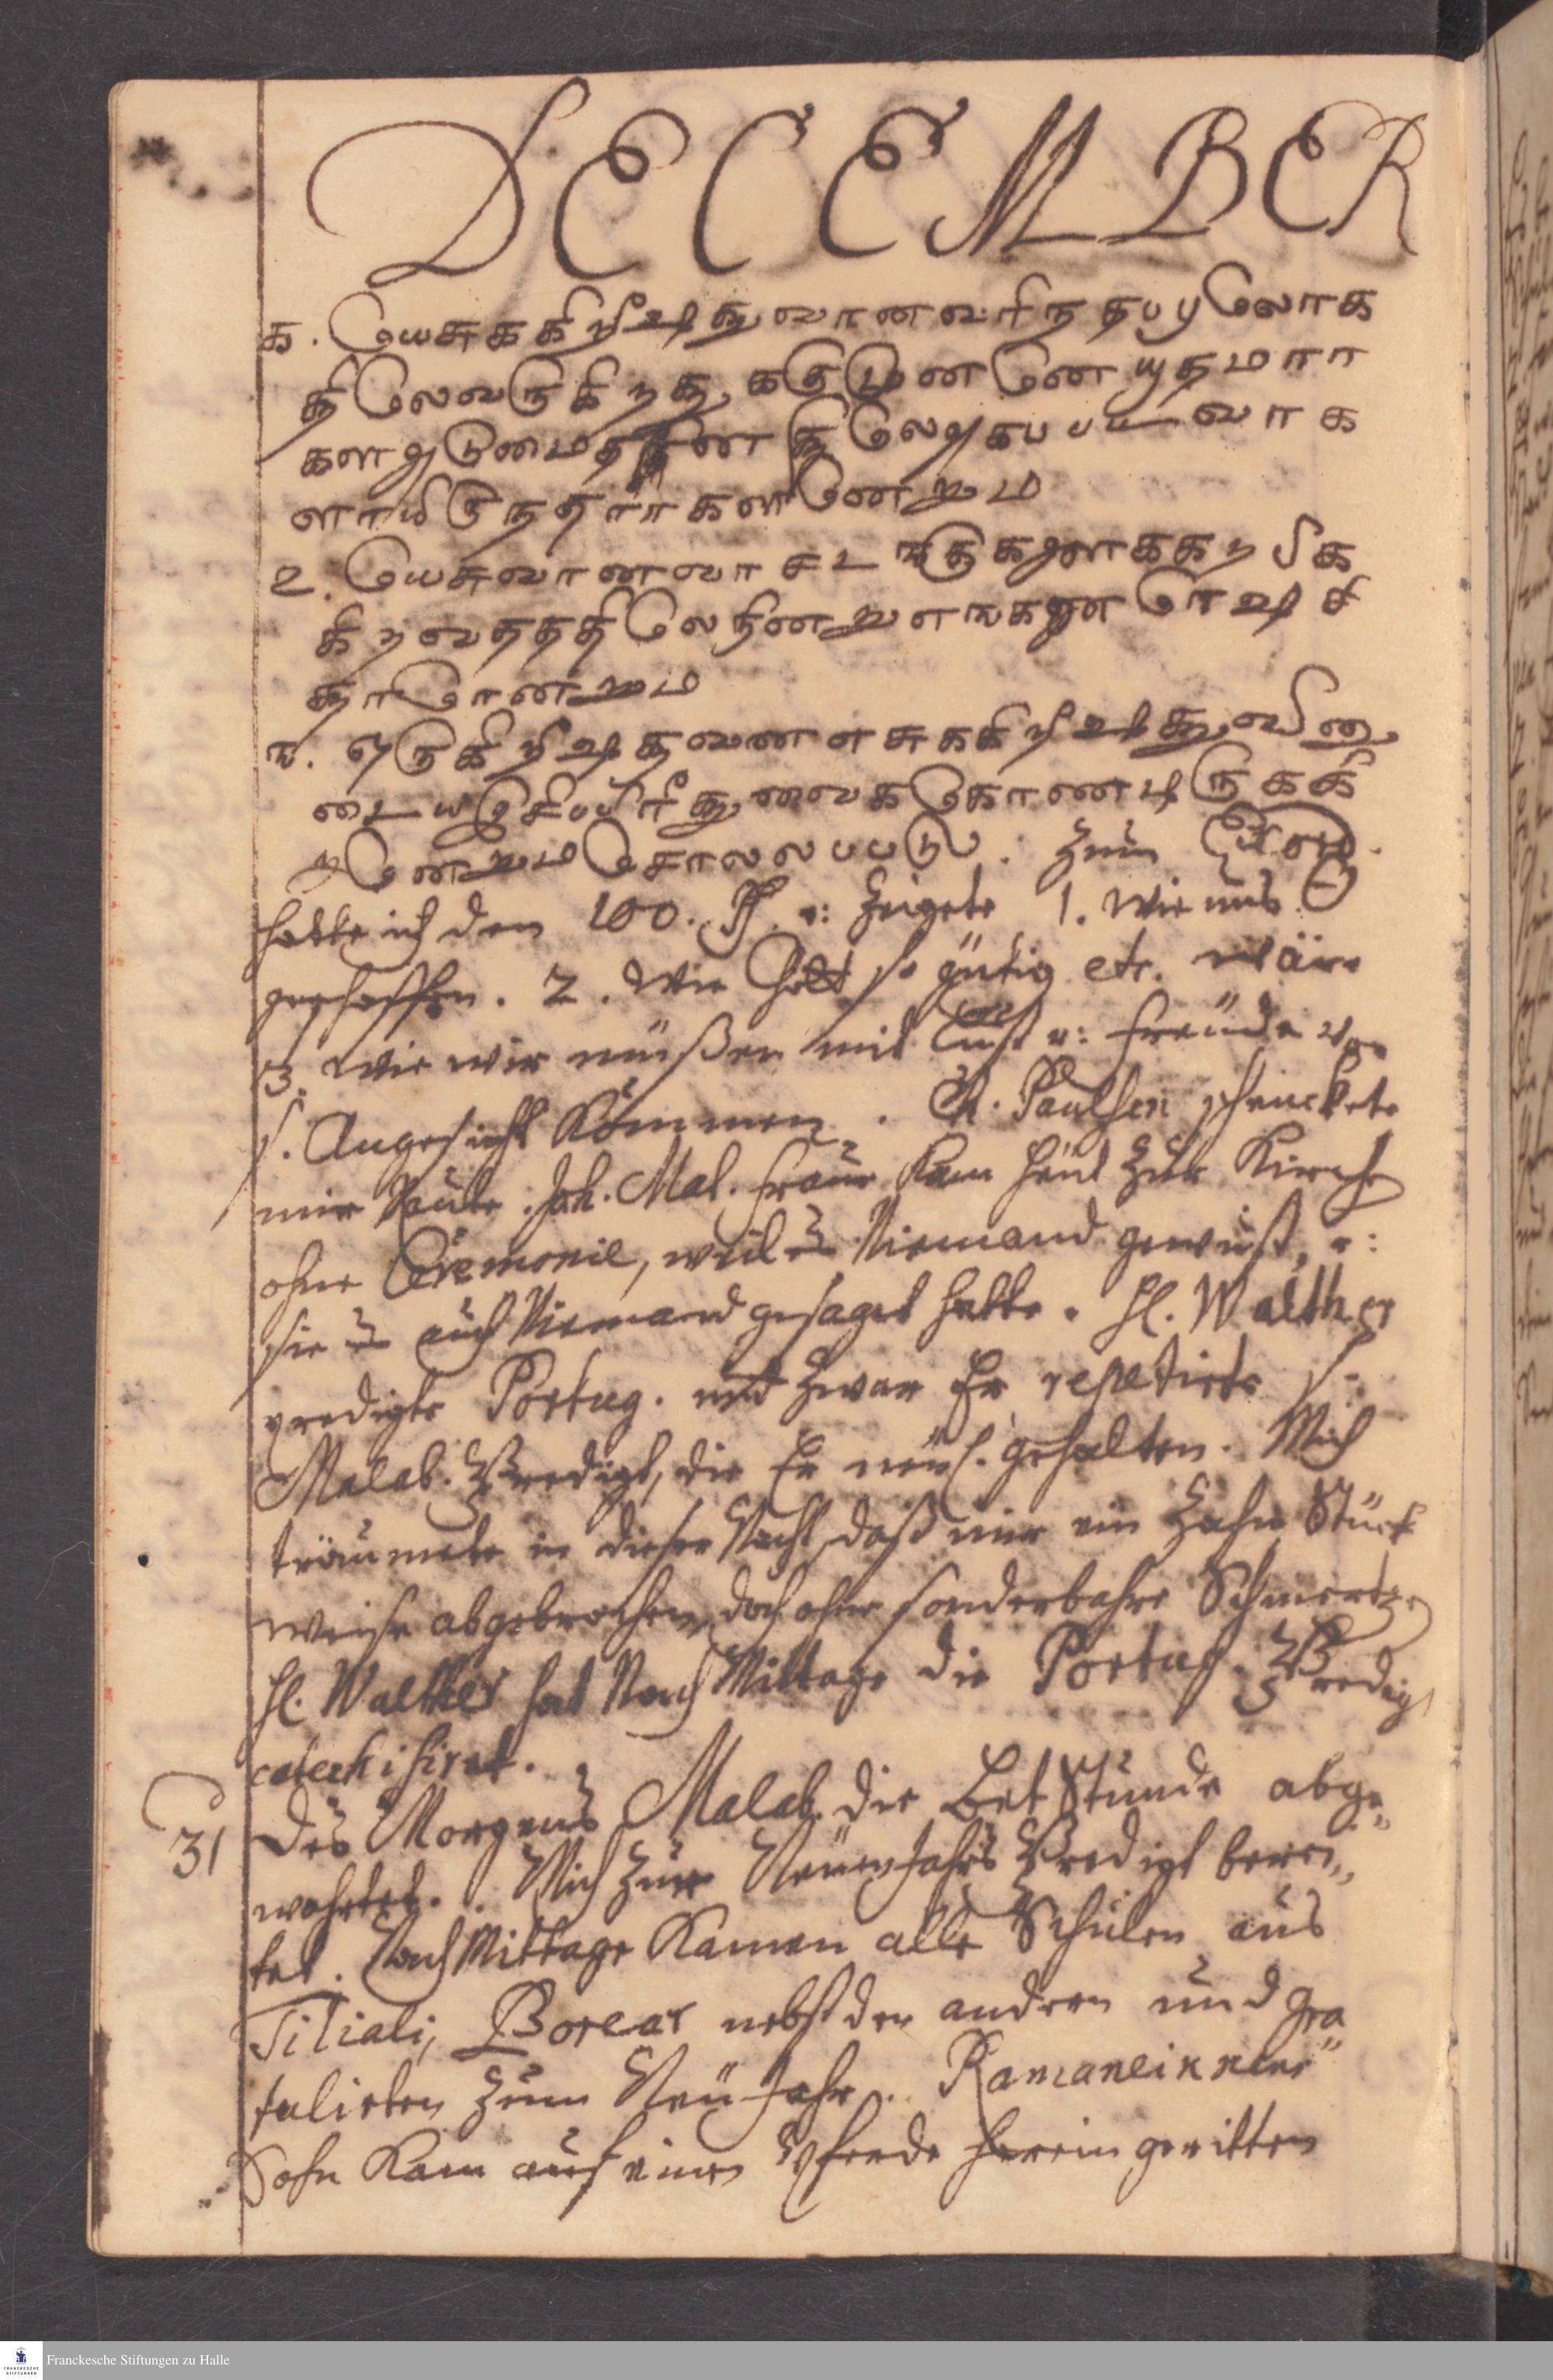 DECEMBER
க. யேசுககிறிஷது வானவரிந தபபு லோக
தி லேவருகிறது, கரு முன னே யுதமாா
களாஞ
ளாயிருநதாாகளெனறும
உ. யேசுவானவா சடஙகுகளாககற
கிறவதததிலே நினறு எஙகளை ஷசி
தாரெனறும
ங. எருகிறிஷதவண எசுககிறிஷதுவினு
டையருசிபபிரிதுவைககொணடிருகக
றெனறும சொலலபபடு. Zum Exord.
hatte ich den 100. Ps. u: zeigete 1. Wie uns
geschaffen. 2. Wie Gott so gütig etc. wäre
3. Wie wir müßen mit Lust u: Freude vor
s. Angesicht kommen. Ch. Paulsen schenckete
mir Raute. Joh. Mal. Fraue kam heut zur Kirche
ohne Ceremonie, weil es Niemand gewust, u:
sie es auch Niemand gesaget hatte. H. Walther
predigte Portug. und zwar Er repetirte s.
Malab. Predigt, die Er neul. gehalten. Mich
träumete in dieser Nacht, daß mir ein Zahn Stück
weise abgebrochen, doch ohne sonderbahre Schmertzen
H. Walther hat Nach Mittage die Portug. Predigt
catechisiret.
31 Des Morgens Malab. die BetStunde abge„
wartet. Mich zur Neuen Jahrs Predigt berei„
tet. Nach Mittage kamen alle Schulen aus
Tiliali, Borear nebst den andern und gra
tulirten zum Neu-Jahr. Ramaneikkens
Sohn kam auf einen Pferde herein geritten
Franckesche Stiftungen zu Halle